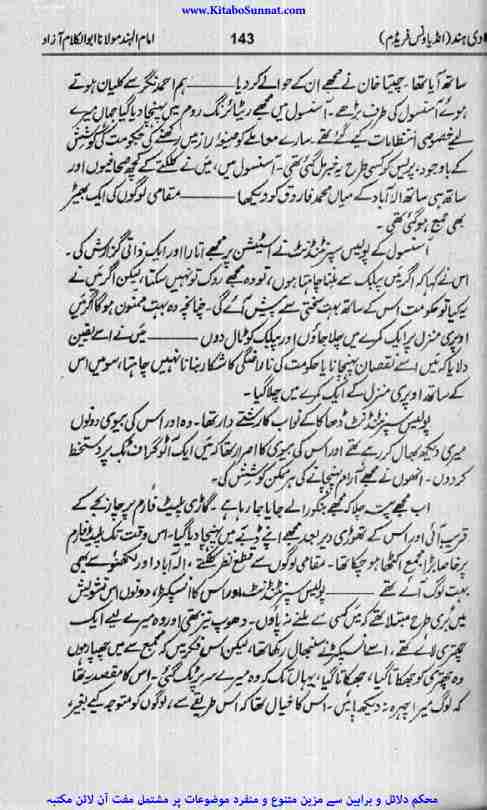 www.KitaboSunnat.com
آزادی ہند (انڈیا ونس فریڈم) 143 امام الہند مولانا ابوالکلام آزاد
ساتھ آیا تھا۔ چیتا خان نے مجھے ان کے حوالے کر دیا ——— ہم احمد نگر سے کلیان ہوتے
ہوئے آسنسول کی طرف بڑھے۔ آسنسول میں مجھے ریٹائرنگ روم میں پہنچا دیا گیا جہاں میرے
لیے خصوصی انتظامات کیے گئے تھے۔ سارے معاملے کو صیغۂ راز میں رکھنے کی حکومت کی کوشش
کے باوجود، پریس کو کسی طرح یہ خبر مل گئی تھی۔ آسنسول میں، میں نے کلکتے کے کچھ صحافیوں اور
ساتھ ہی ساتھ الٰہ آباد کے میاں محمد فاروق کو دیکھا ——— مقامی لوگوں کی ایک بھیڑ
بھی جمع ہو گئی تھی۔
آسنسول کے پولیس سپرنٹنڈنٹ نے اسٹیشن پر مجھے اتارا اور ایک ذاتی گزارش کی۔
اس نے کہا کہ اگر میں پبلک سے ملنا چاہتا ہوں، تو وہ مجھے روک تو نہیں سکتا، لیکن اگر میں نے
یہ کیا تو حکومت اس کے ساتھ بہت سختی سے پیش آئے گی۔ چنانچہ وہ بہت ممنون ہو گا اگر میں
اوپری منزل پر ایک کمرے میں چلا جاؤں اور پبلک کو ٹال دوں ——— میں نے اسے یقین
دلایا کہ میں اسے نقصان پہنچانا یا حکومت کی ناراضگی کا شکار بنانا نہیں چاہتا، سو میں اس
کے ساتھ اوپری منزل کے ایک کمرے میں چلا گیا۔
پولیس سپرنٹنڈنٹ ڈھاکا کے نواب کا رشتے دار تھا۔ وہ اور اس کی بیوی دونوں
میری دیکھ بھال کر رہے تھے اور اس کی بیوی کا اصرار تھا کہ میں ایک آٹوگراف بک پر دستخط
کر دوں۔ انھوں نے مجھے آرام پہنچانے کی ہر ممکن کوشش کی۔
اب مجھے پتہ چلا کہ مجھے بنکورا لے جایا جا رہا ہے۔ گاڑی پلیٹ فارم پر چار بجے کے
قریب آئی اور اس کے تھوڑی دیر بعد مجھے اپنے ڈبے میں پہنچا دیا گیا۔ اس وقت تک پلیٹ فارم
پر خاصا بڑا مجمع اکٹھا ہو چکا تھا۔ مقامی لوگوں سے قطع نظر کلکتے، الٰہ آباد اور لکھنؤ سے بھی
بہت لوگ آئے تھے ——— پولیس سپرنٹنڈنٹ اور اس کا انسپکٹر، دونوں اس تشویش
میں بُری طرح مبتلا تھے کہ میں کسی سے ملنے نہ پاؤں۔ دھوپ تیز تھی اور وہ میرے لیے ایک
چھتری لائے تھے، اسے انسپکٹر نے سنبھال رکھا تھا، لیکن اس فکر میں کہ مجمعے سے میں چھپا رہوں
وہ چھتری کو جھکاتا گیا، جھکاتا گیا، یہاں تک کہ وہ میرے سر پر ٹک گئی۔ اس کا مقصد یہ تھا
کہ لوگ میرا چہرہ نہ دیکھ پائیں۔ اس کا خیال تھا کہ اس طریقے سے، لوگوں کو متوجہ کیے بغیر،
محکم دلائل و براہین سے مزین متنوع و منفرد موضوعات پر مشتمل مفت آن لائن مکتبہ